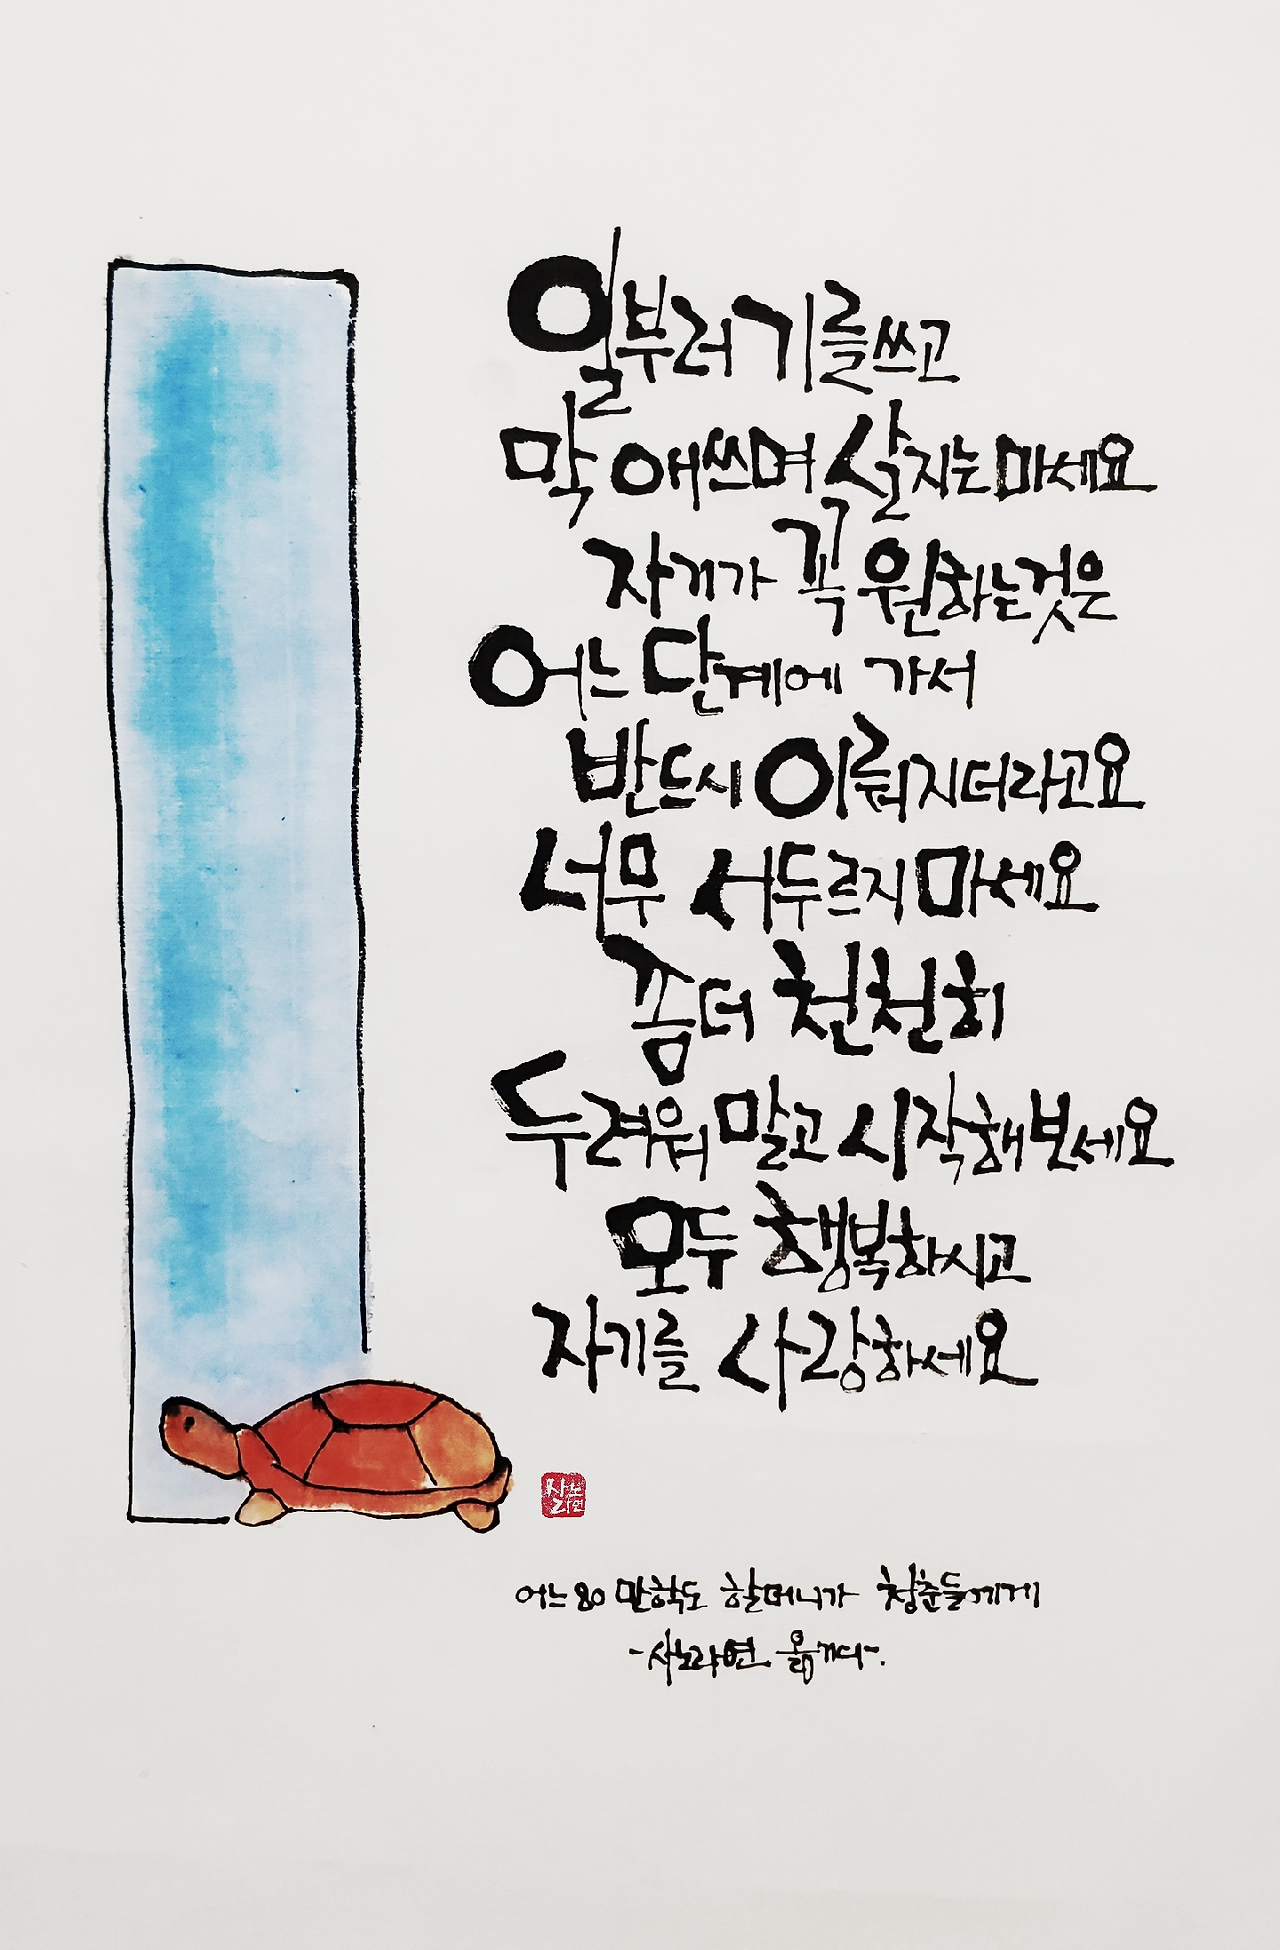 일부러 기를 쓰고
막 애쓰며 살지는 마세요
자기가 꼭 원하는것은
어느 단계에 가서
반드시 이뤄지더라고요
너무 서두르지 마세요
좀더 천천히
두려워 말고 시작해보세요
모두 행복하시고
자기를 사랑하세요
사노
라연
어느 80 만학도 할머니가 청춘들에게
-사노라면 옮기다-.